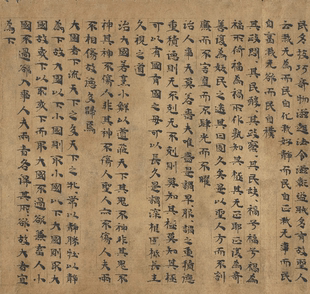 民多伎巧奇物滋起法令滋彰盜賊多有故聖人
云我无為而民自化我好靜而民自正我无事而民
自富我无欲而民自樸
其政悶其民醇其政察其民缺禍兮福
所倚福兮禍所伏孰知其極其无正正復為奇
善復為妖民之迷其日固久矣是以聖人方而不割
廉而不害直而不肆光而不曜
治人事天莫若嗇夫唯嗇是謂早服早服謂之重積德
重積德則无不剋无不剋則莫知其極莫知其極
可以有國有國之母可以長久是謂深根固柢長生
久視之道
治大國若烹小鮮以道莅天下其鬼不神非其鬼不
神其神不傷人非其神不傷人聖人亦不傷人夫兩
不相傷故德交歸焉
大國者下流天下之交天下之牝牝常以靜勝牡以靜
為下故大國以下小國則取小國小國以下大國則取大
國故或下以取或下而取大國不過欲兼畜人小
國不過欲入事人夫兩者各得其所欲故大者宜
為下